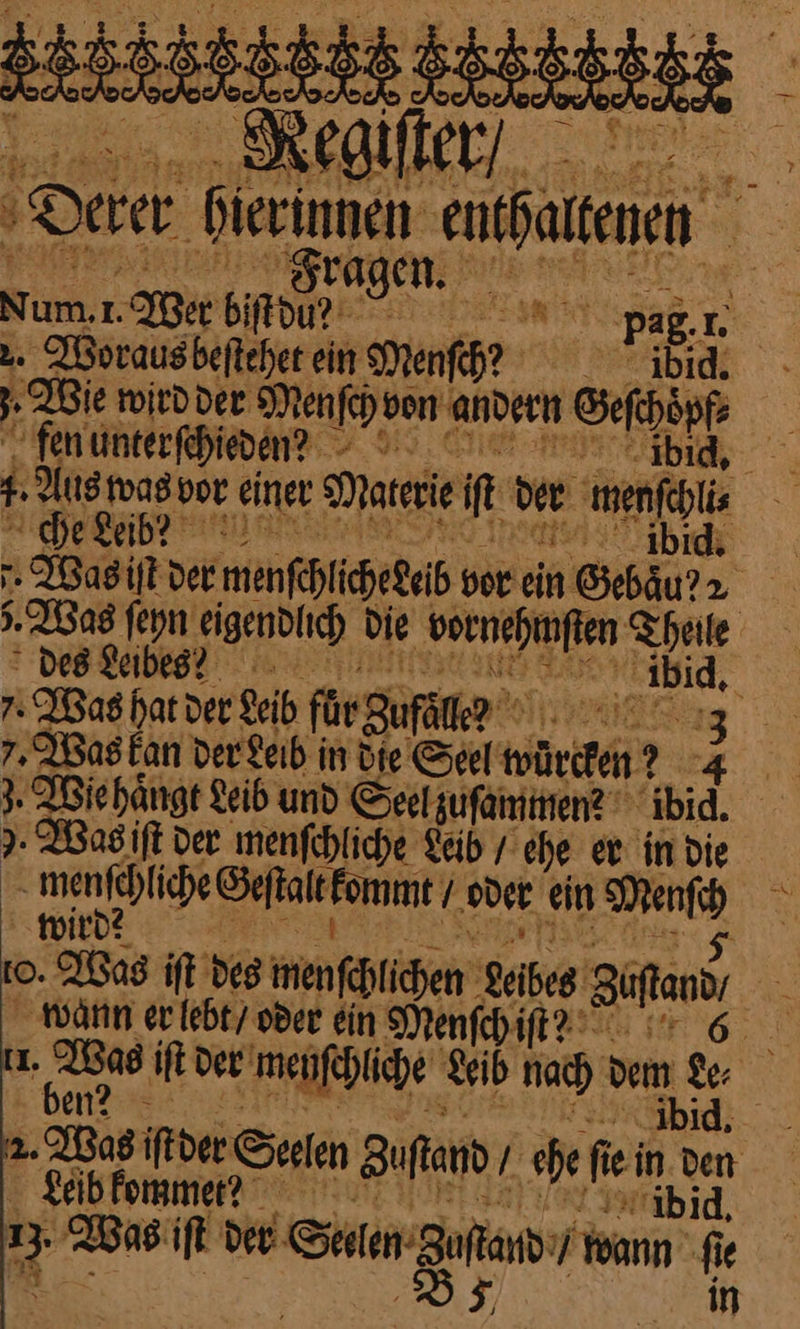 Regiſter/
Derer hierinnen enthaltenen
Fragen.
Num. 1. Wer biſt du? pag. 1.
2. Woraus beſtehet ein Menſch? ibid.
3. Wie wird der Menſch von andern Geſchoͤpf⸗
fen unterſchieden? ibid.
4. Aus was vor einer Materie iſt der menſchli⸗
che Leib? ibid.
5. Was iſt der menſchliche Leib vor ein Gebaͤu? 2
5. Was ſeyn eigendlich die vornehmſten Theile
des Leibes? ibid.
7. Was hat der Leib fuͤr Zufaͤlle? 3
7. Was kan der Leib in die Seel wuͤrcken? 4
3. Wie haͤngt Leib und Seel zuſammen? ibid.
9. Was iſt der menſchliche Leib / ehe er in die
menſchliche Geſtalt kommt / oder ein Menſch
wird? 5
10. Was iſt des menſchlichen Leibes Zuſtand/
wann er lebt/ oder ein Menſch iſt? 6
11. Was iſt der menſchliche Leib nach dem Le⸗
ben? ibid.
2. Was iſt der Seelen Zuſtand / ehe ſie in den
Leib kommet? ibid.
13. Was iſt der Seelen Zuſtand / wann ſie
B 5 in